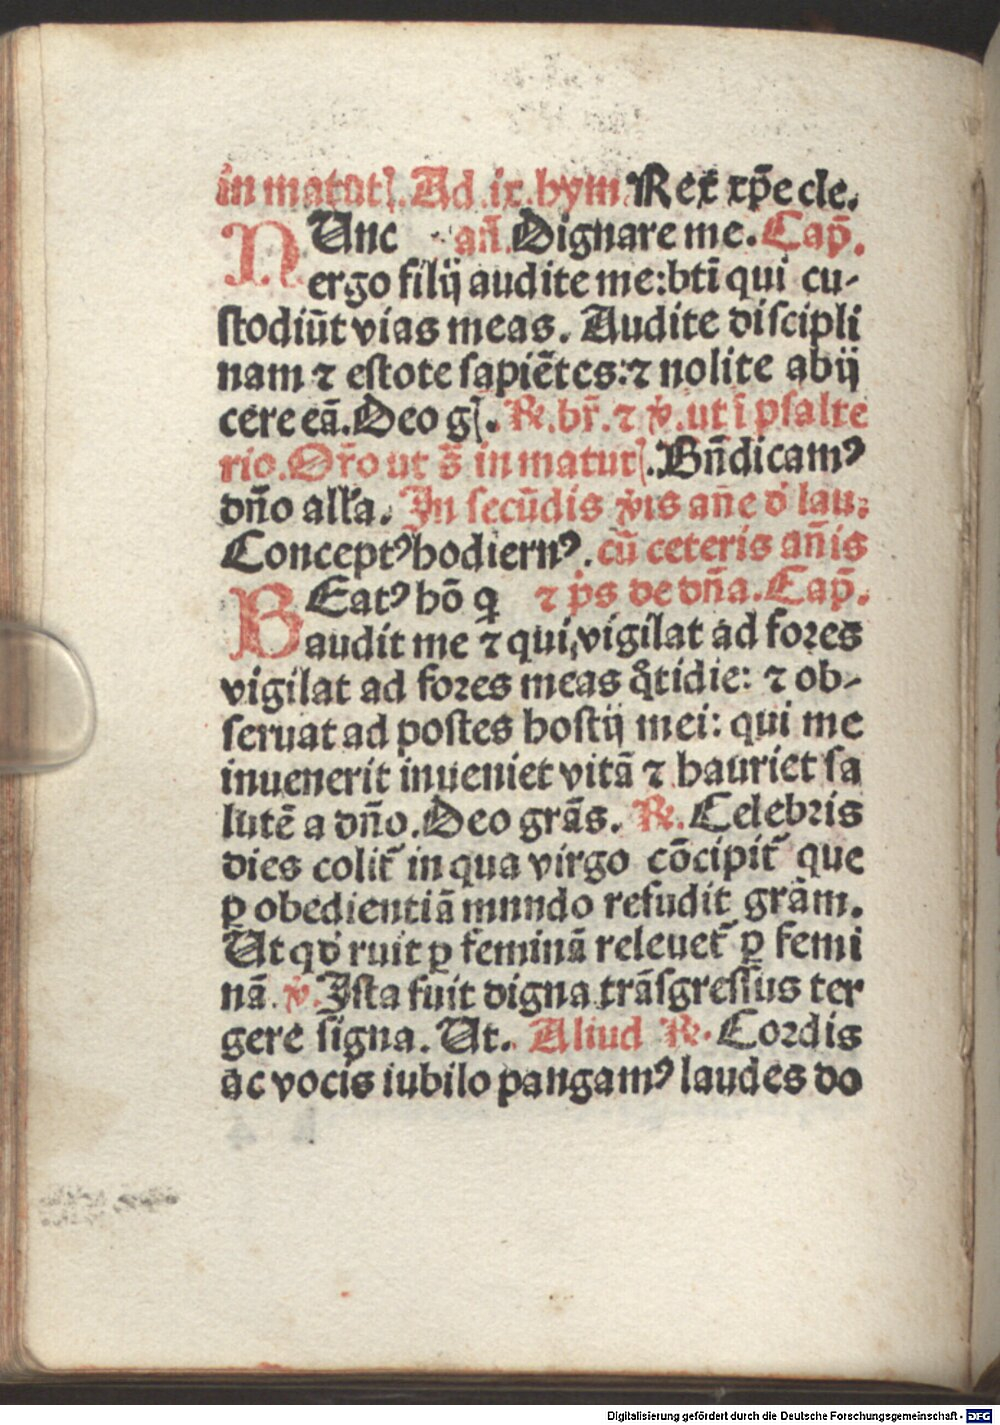 in matutꝭ. Ad .ix. hym Rex xp̄e cle.
NUnc añ. Dignare me. Cap̄.
ergo filij audite me: bti̅ qui cu-
stodiūt vias meas. Audite discipli
nam ⁊ estote sapiētes: ⁊ nolite abij
cere eā. Deo gꝭ. ℟. br̄. ⁊ ℣. ut ī psalte
rio. Or̄o ut s̄ in matutꝭ. Bn̄dicamꝰ
dn̄o all'a. In secūdis v̄is an̄e d' lau:
Conceptꝰ hodiernꝰ. cū ceteris an̄is
BEatꝰ hō q ⁊ p̄s de dn̄a. Cap̄.
audit me ⁊ qui vigilat ad fores
vigilat ad fores meas qͣtidie: ⁊ ob-
seruat ad postes hostij mei: qui me
inuenerit inueniet vitā ⁊ hauriet sa
lutē a dn̄o. Deo grās. ℟. Celebris
dies colit᷑ in qua virgo cōcipit᷑ que
ꝑ obedientiā mundo refudit grām.
Ut qd' ruit ꝑ feminā releuet᷑ ꝑ femi
nā. ℣. Ista fuit digna trāsgressus ter
gere signa. Ut. Aliud ℟. Cordis
ac vocis iubilo pangamꝰ laudes do
Digitalisierung gefördert durch die Deutsche Forschungsgemeinschaft - DFG